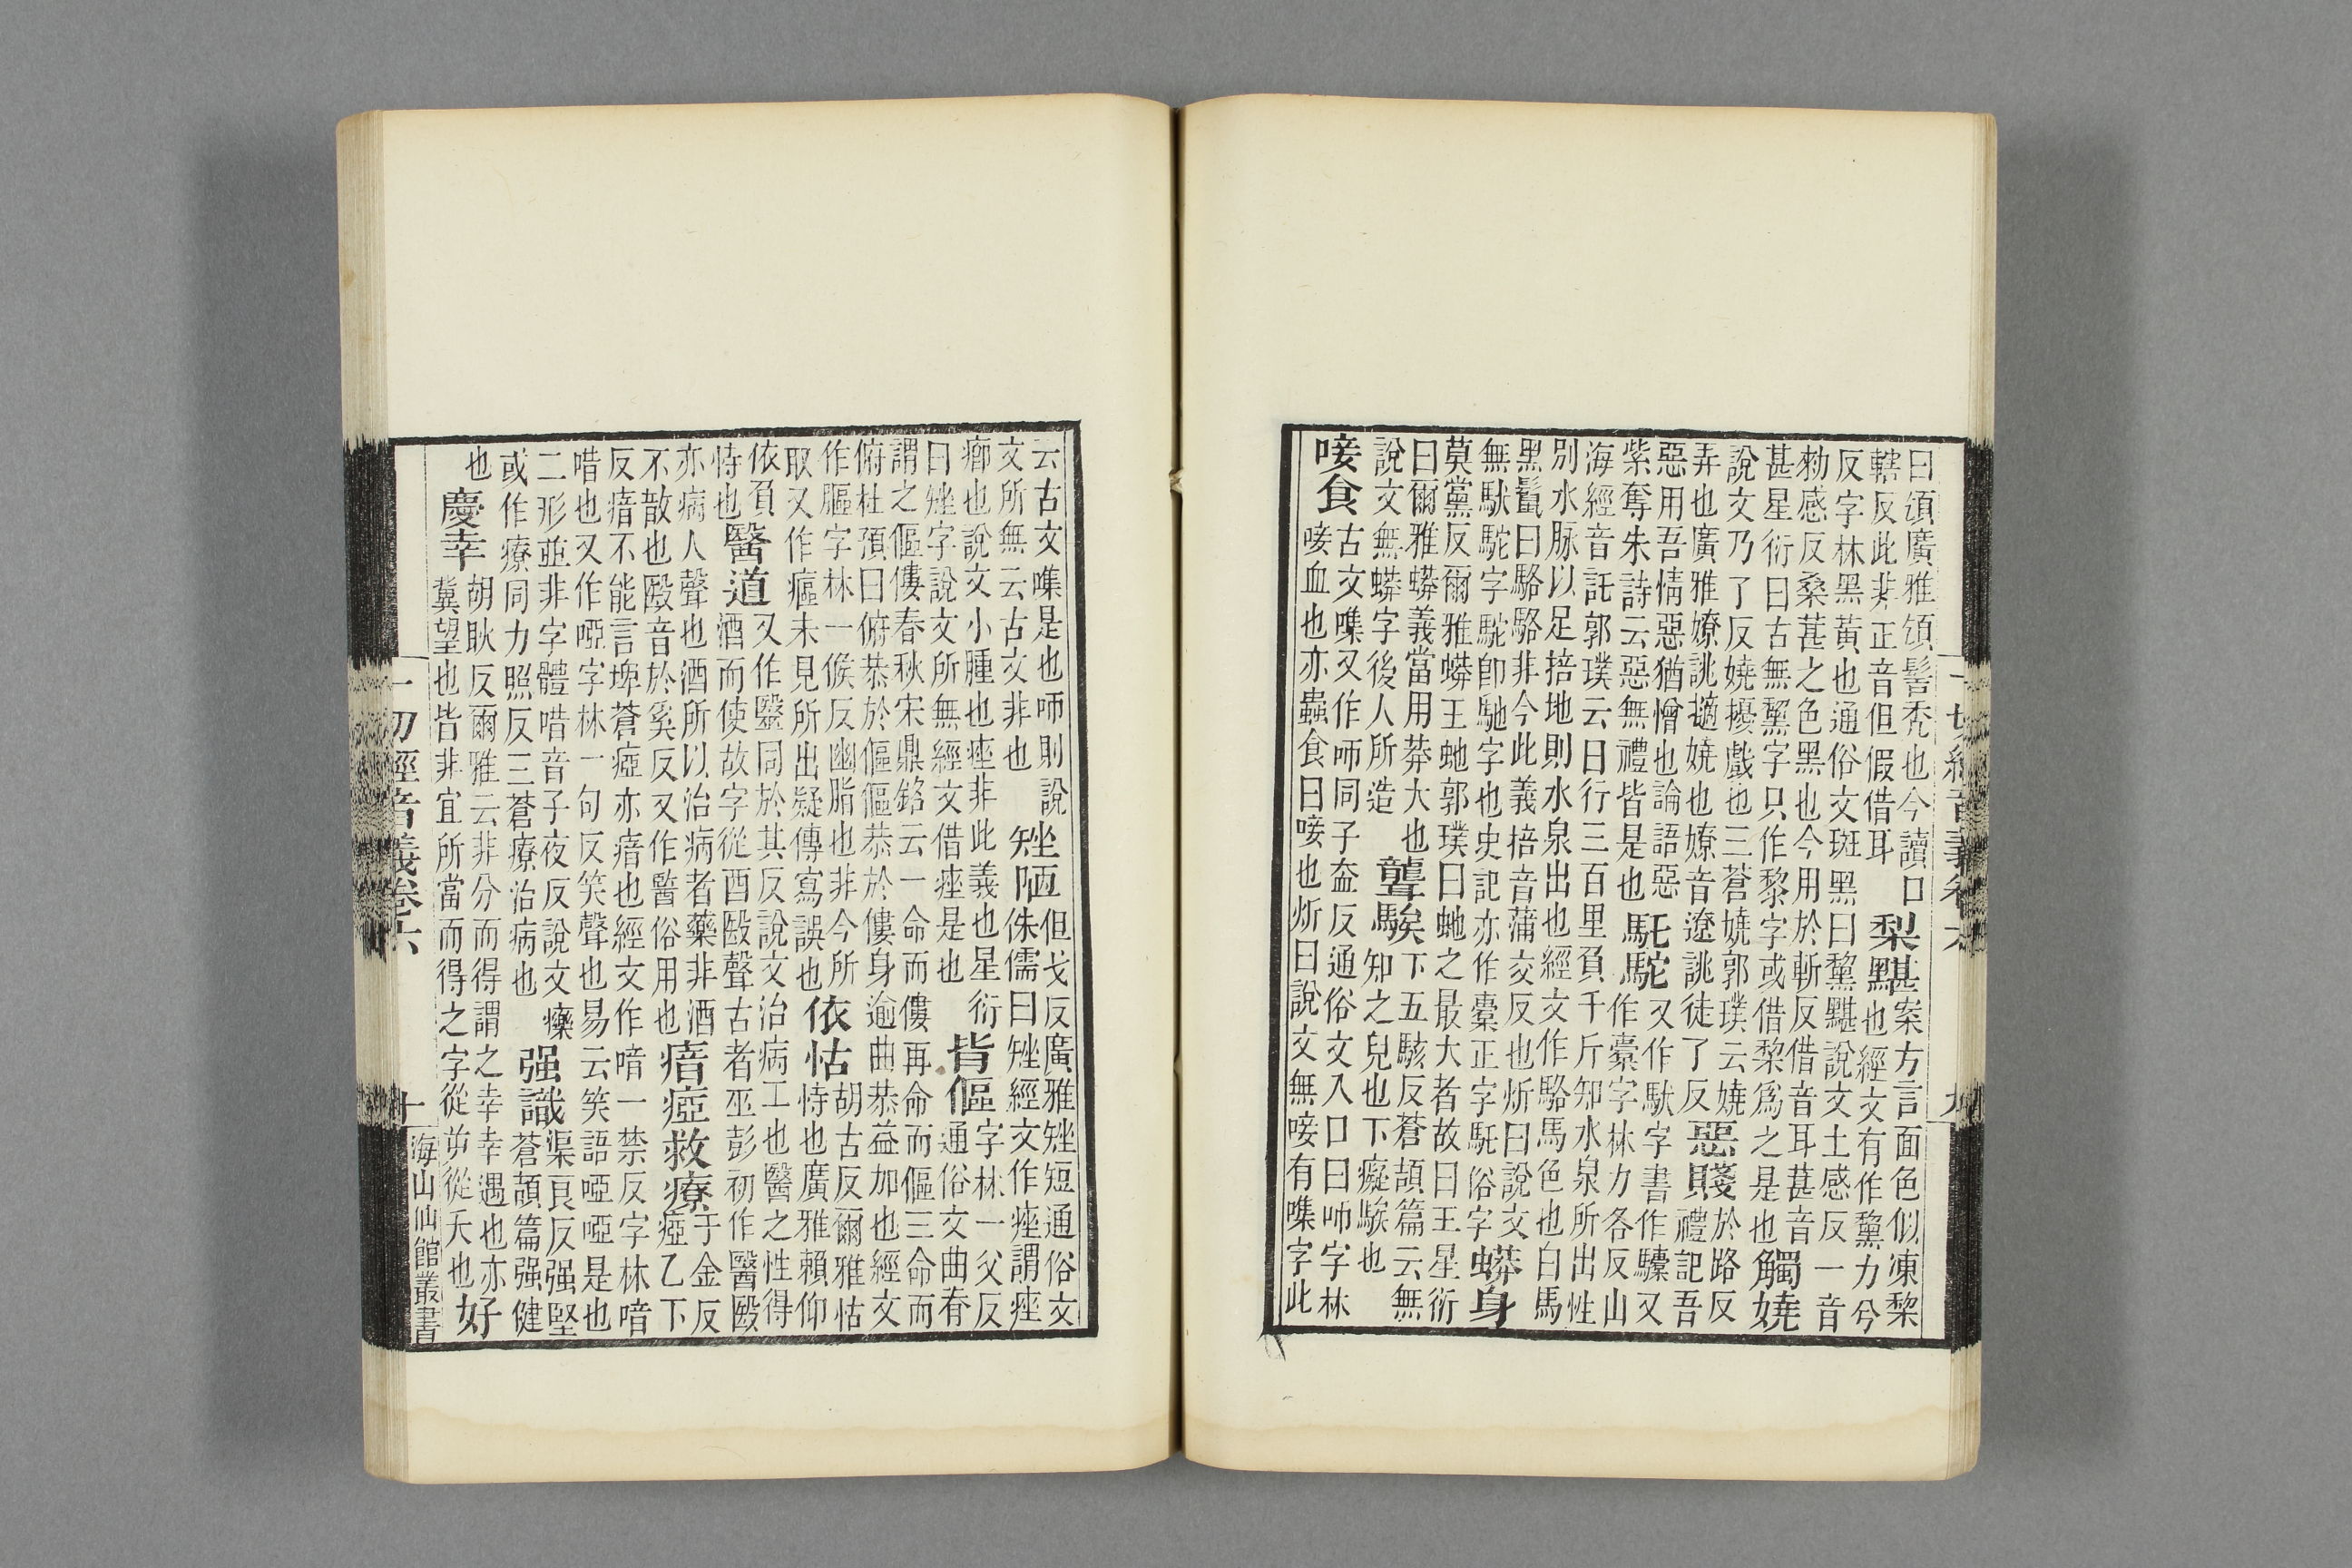 曰頌廣雅頌髻禿也今讀口
轄反此非正音但假借耳
梨黮
案方言面色似凍梨
也經文有作黧力兮
反字林黑黃也通俗文斑黑曰黧黮說文土感反一音
勑感反桑葚之色黑也今用於斬反借音耳甚音
甚星衍曰古無黧字只作黎字或借棃爲之是也
觸嬈
說文乃了反嬈擾戲也三蒼嬈郭璞云嬈
弄也廣雅嫽誂𢤱嬈也嫽音遼誂徒了反
惡賤
於路反
禮記吾
惡用吾情惡猶憎也論語惡
紫奪朱詩云惡無禮皆是也
馲駝
又作馱字書作驝又
作橐字林力各反山
海經音託郭璞云日行三百里負千斤知水泉所出性
別水脉以足掊地則水泉出也經文作駱馬色也白馬
黑鬣曰駱駱非今此義掊音蒲交反也炘曰說文
無馱駝字駝卽馳字也史記亦作橐正字馲俗字
蟒身
莫黨反爾雅蟒王虵郭璞曰虵之最大者故曰王星衍
曰爾雅蟒義當用莽大也
說文無蟒字後人所造
聾騃
下五駭反蒼頡篇云無
知之皃也下癡騃也
唼食
古文噍又作咂同子盍反通俗文入口曰咂字林
唼血也亦蟲食曰唼也炘曰說文無唼有噍字此
云古文噍是也咂則說
文所無云古文非也
矬陋
但戈反廣雅矬短通俗文
侏儒曰矬經文作痤謂痤
癤也說文小腫也痤非此義也星衍
曰矬字說文所無經文借痤是也
背傴
字林一父反
通俗文曲脊
謂之傴僂春秋宋鼎銘云一命而僂再命而傴三命而
俯杜預曰俯恭於傴傴恭於僂身逾曲恭益加也經文
作膒字林一侯反幽脂也非今所
取又作㾯未見所出疑傳寫誤也
依怙
胡古反爾雅怙
恃也廣雅賴仰
依負
恃也
醫道
又作毉同於其反說文治病工也醫之性得
酒而使故字從酉殹聲古者巫彭初作醫殹
亦病人聲也酒所以治病者藥非酒
不散也殹音於奚反又作䃜俗用也
瘖瘂救療
于金反
瘂乙下
反瘖不能言埤蒼瘂亦瘖也經文作喑一禁反字林喑
唶也又作啞字林一句反笑聲也易云笑語啞啞是也
二形並非字體唶音子夜反說文㿋
或作療同力照反三蒼療治病也
强識
渠良反强堅
蒼頡篇强健
也
慶幸
胡耿反爾雅云非分而得謂之幸幸遇也亦
冀望也皆非宜所當而得之字從屰從夭也
好
一切經音義卷六
十
海山仙館叢書